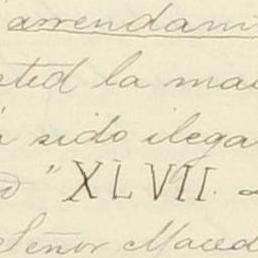 arrendami
sted la ma
a sido ilega
" XLVII.
Señor Maced